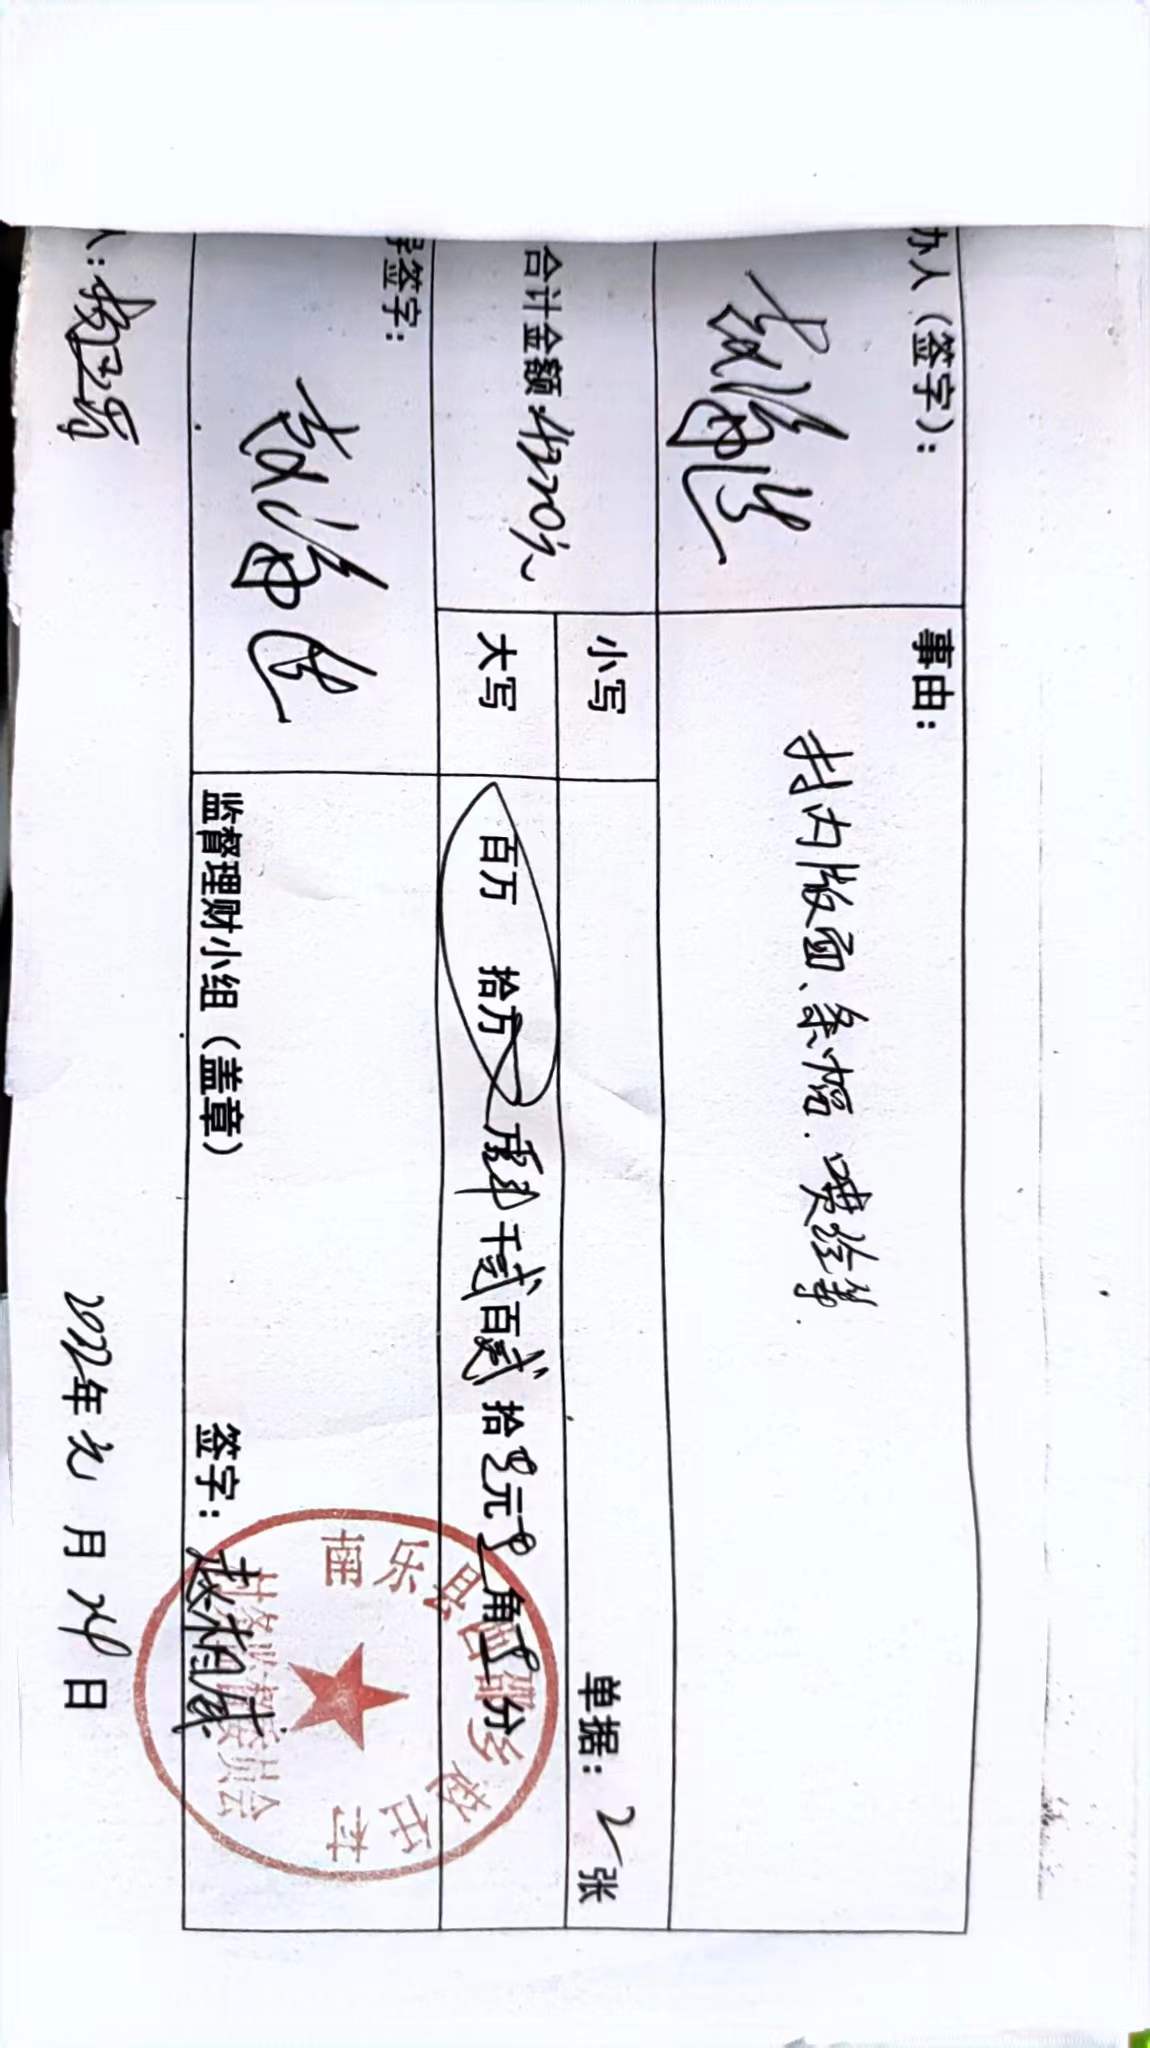 办人（签字）：
事由：
村内版面、条幅.喷绘等.
合计金额：4220元
小写
单据：2张
大写
百万 拾万 万肆千贰百贰拾零元零角零分
签字：
监督理财小组（盖章）
签字：
南乐县西邵乡赵庄村
村务监督委员会
人：
2022年元月24日